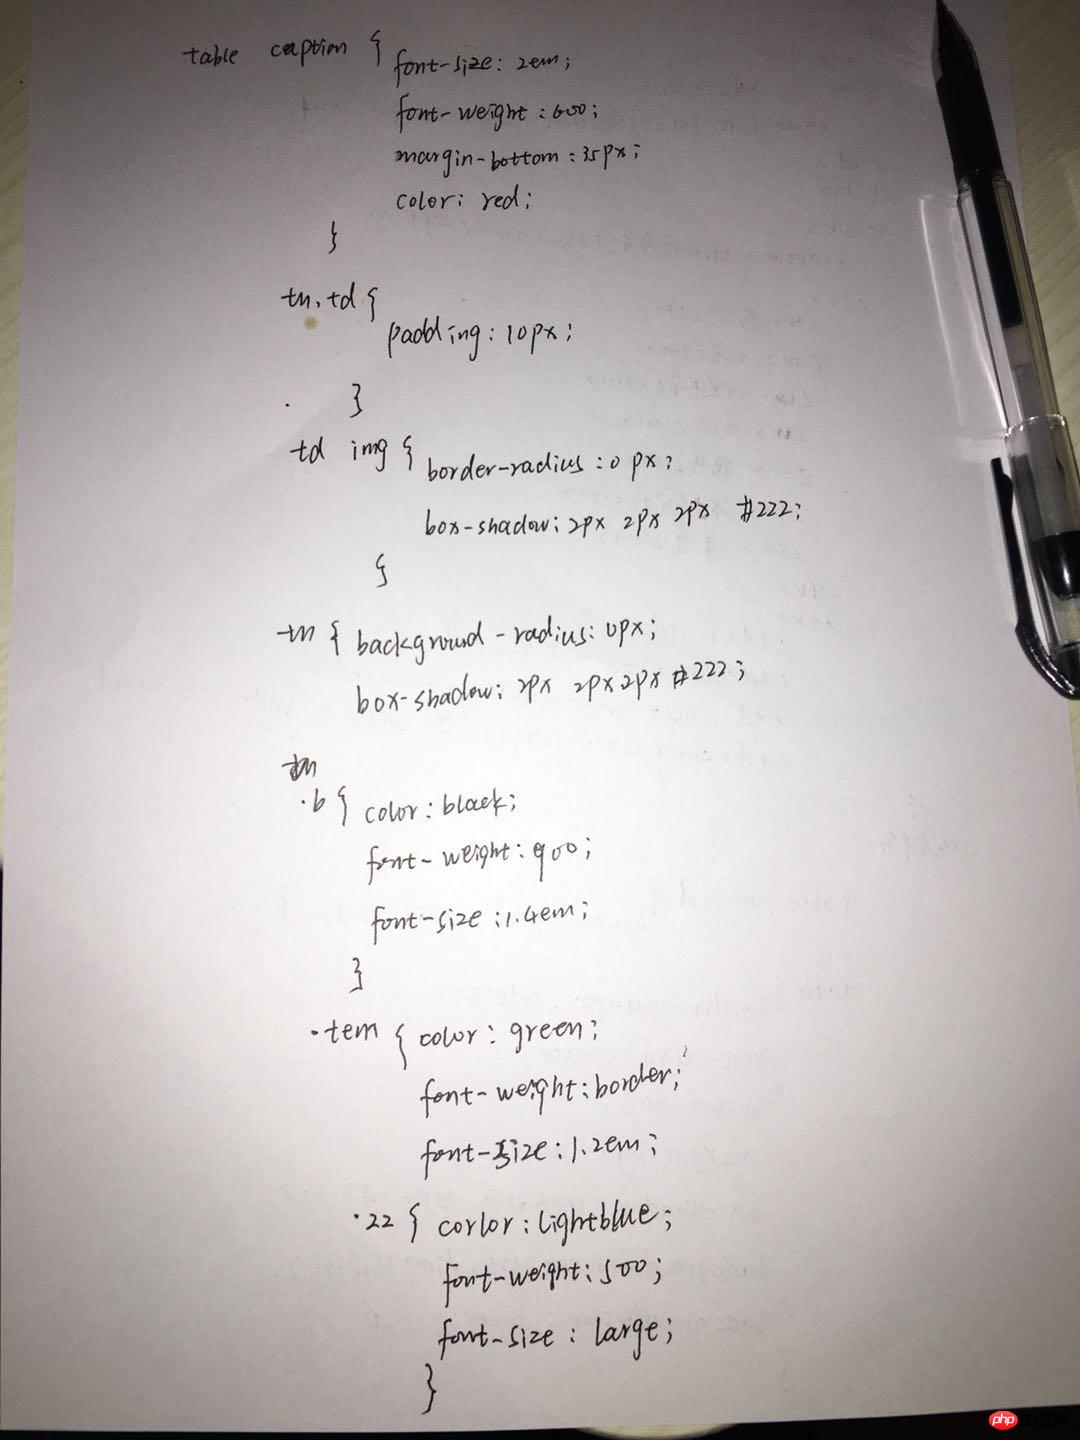 table caption {
font-size: 2em;
font-weight: 600;
margin-bottom: 35px;
color: red;
}
th, td {
padding: 10px;
}
td img {
border-radius: 0px;
box-shadow: 2px 2px 2px #222;
{
th { background-radius: 0px;
box-shadow: 2px 2px 2px #222;
.b { color: black;
font-weight: 900;
font-size: 1.4em;
}
.tem { color: green;
font-weight: border;
font-size: 1.2em;
.22 { corlor: lightblue;
font-weight: 500;
font-size: large;
}
php